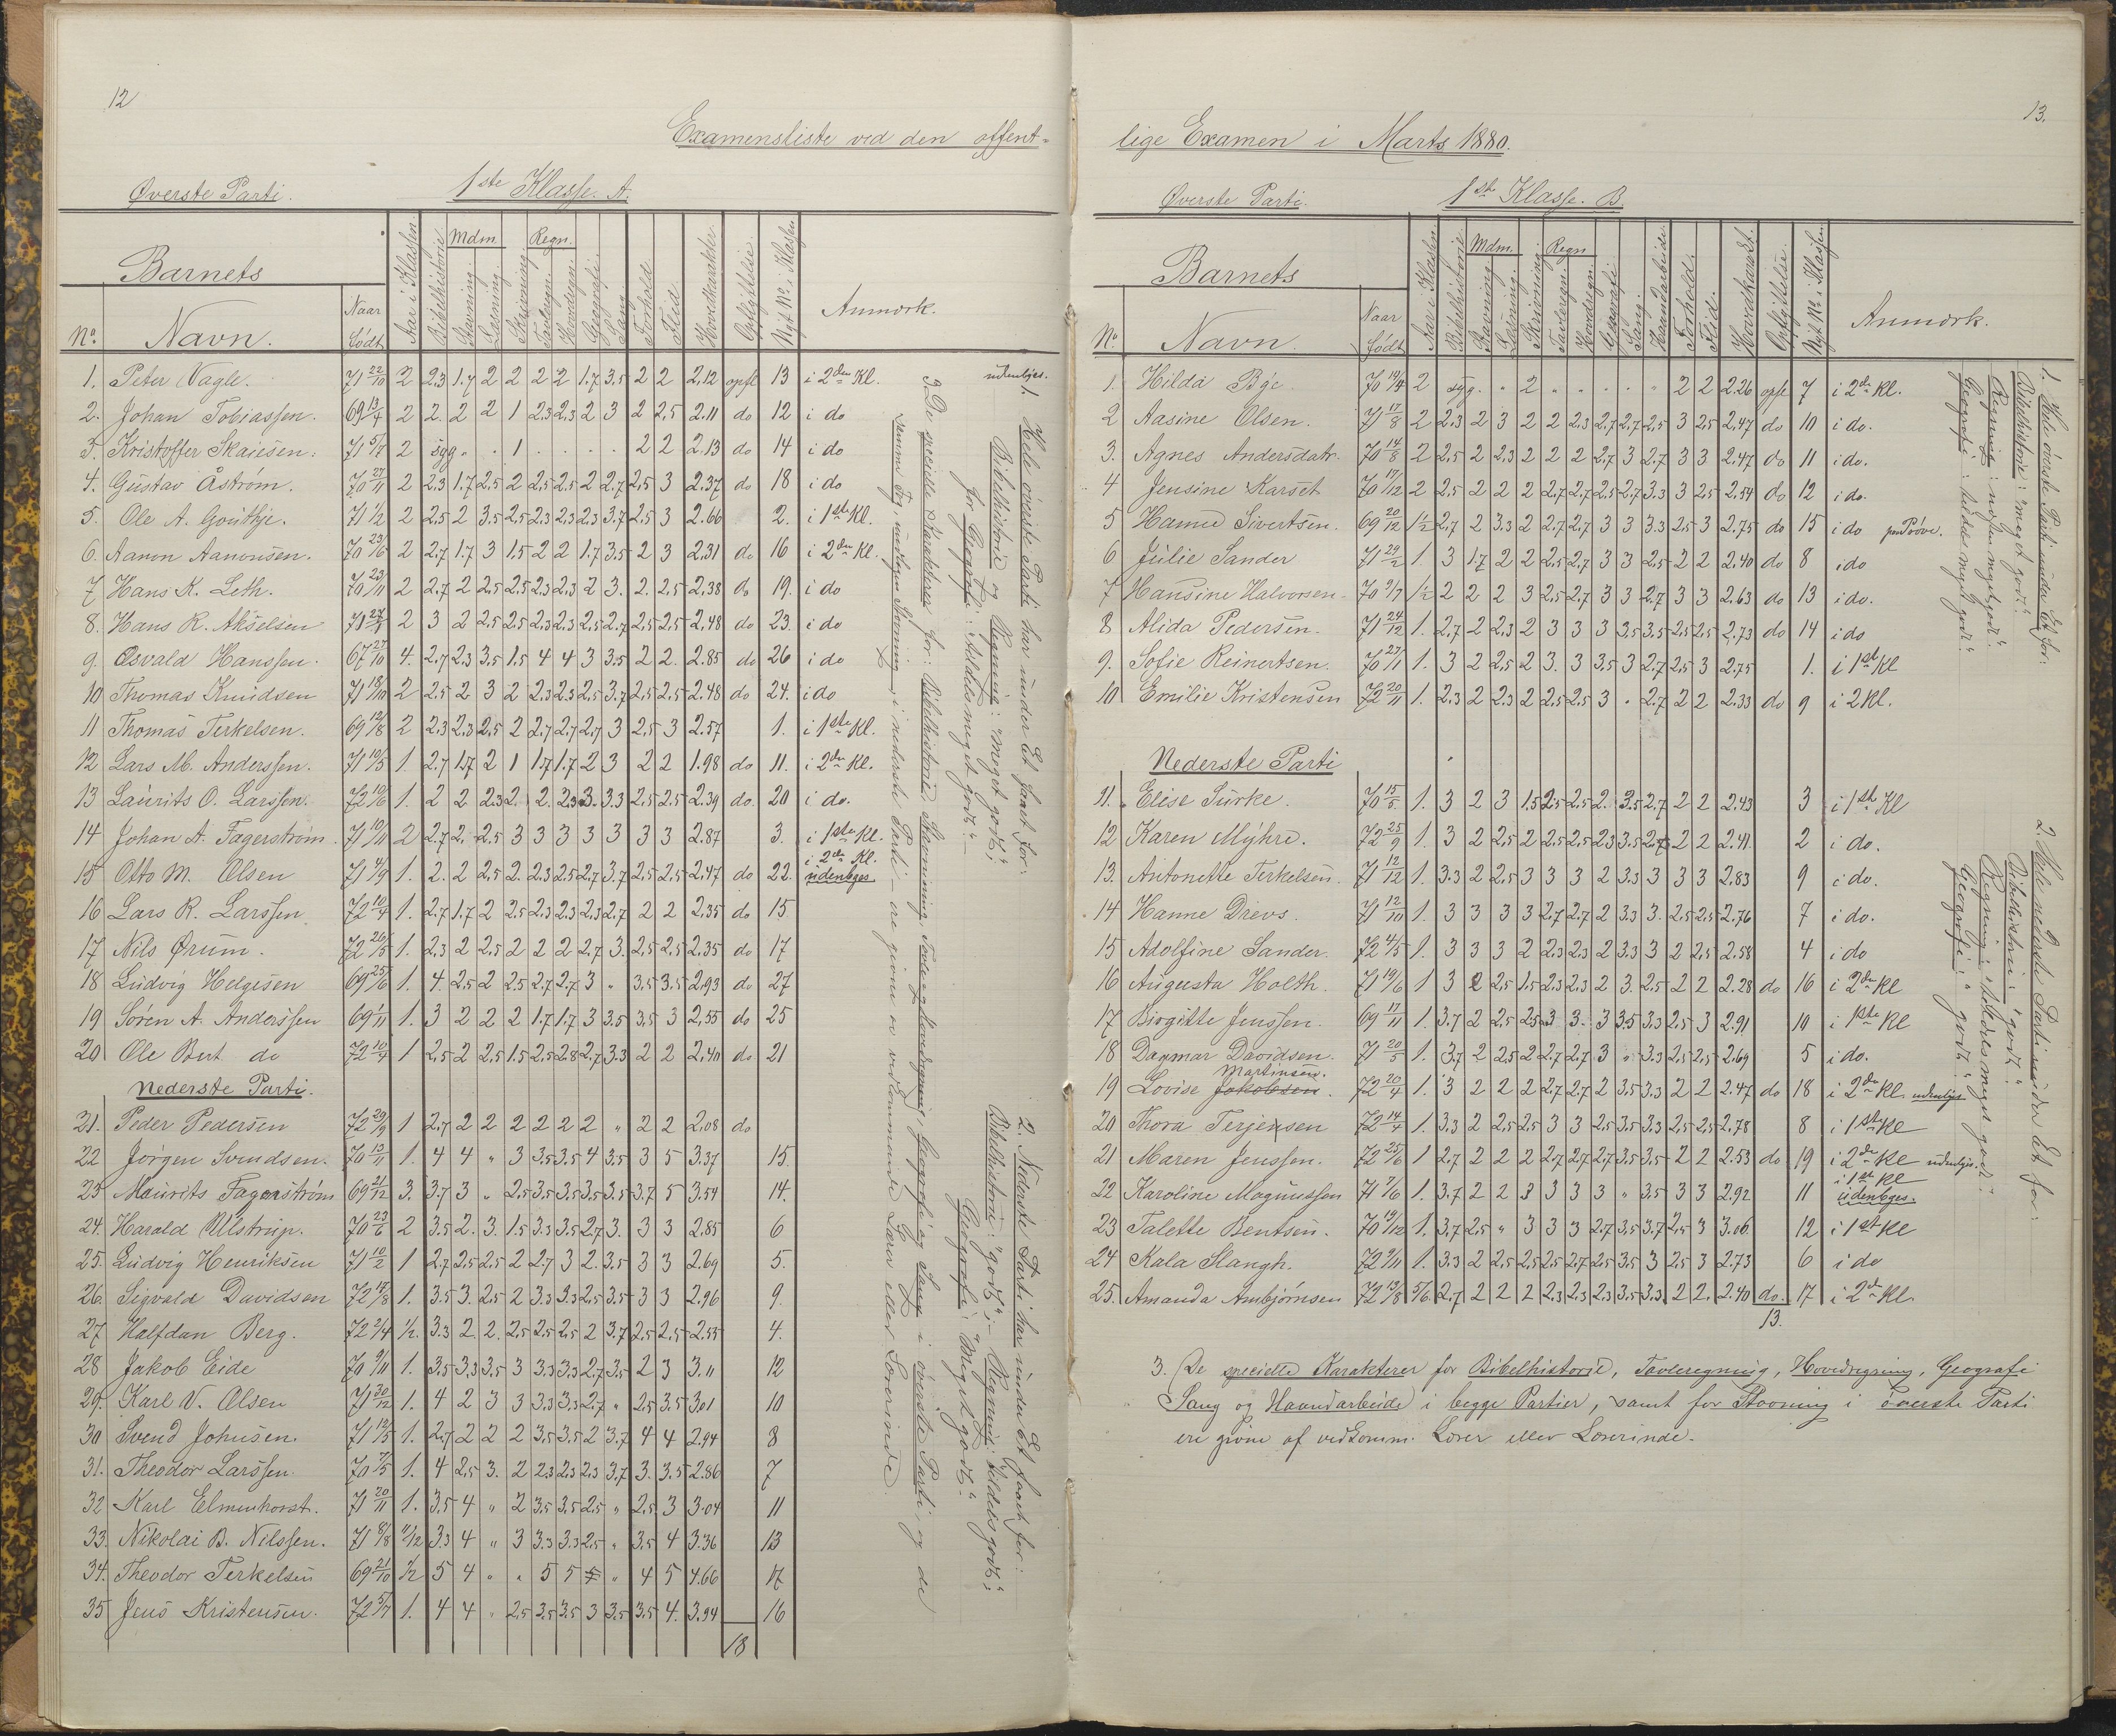 12
Examensliste ved den offent-
Øverste Parti. 1ste Klasse. A.
Barnets
Mdm. Regn.
No. Navn. Naar Født Aar i Klassen. Bibelhistorie Stavning. Læsning. Skrivning Tavleregn. Hovedregn. Geografi. Sang Forhold. Flid. Hovedkarakter. Opflyttelse. Nyt No. i Klassen Anmærk.
1. Peter Vagle. 71 22/10 2 2.3 1.7 2 2 2 2 1.7 3.5 2 2 2.12 opfl 13 i 2den Kl. udenbyes.
2. Johan Tobiassen. 69 13/4 2 2. 2 2 1 2.3 2.3 2 3 2 2.5 2.11 do 12 i do
3. Kristoffer Skaiesen. 71 5/7 2 syg „ . 1 . . . . 2 2 2.13 do 14 i do
4. Gustav Åstrøm. 70 27/11 2 2.3 1.7 2.5 2 2.5 2.5 2 2.7 2.5 3 2.37 do 18 i do
5. Ole A. Gouthje. 71 1/2 2 2.5 2 3.5 2.5 2.3 2.3 2.3 3.7 2.5 3 2.66 2. i 1ste Kl.
6. Aanon Aanonsen. 70 23/6 2 2.7 1.7 3 1.5 2 2 1.7 3.5 2 3 2.31 do 16 i 2den Kl.
7 Hans K. Leth. 70 23/11 2 2.7 2 2.5 2.5 2.3 2.3 2 3. 2. 2.5 2.38 do 19. i do
8. Hans R. Akselsen 2 3 2 2.5 2.5 2.3 2.3 2.5 2.7 2.5 2.5 2.48 do 23. i do
9. Osvald Hanssen. 67 27/10 4. 2.7 2.3 3.5 1.5 4 4 3 3.5 2 2. 2.85 do 26 i do
10 Thomas Knudsen 71 18/10 2 2.5 2 3 2 2.3 2.3 2.5 3.7 2.5 2.5 2.48 do 24. i do
11 Thomas Terkelsen. 69 12/8 2 2.3 2.3 2.5 2 2.7 2.7 2.7 3 2.5 3 2.57 1. i 1ste Kl.
12 Lars M. Anderssen. 71 10/5 1. 2.7 1.7 2 1 1.7 1.7 2 3 2 2 1.98 do 11. i 2den Kl.
13 Laurits O. Larssen. 72 10/6 1. 2 2 2.3 2. 2. 2.3 3. 3.3 2.5 2.5 2.39 do. 20 i do.
14 Johan A. Fagerstrøm. 71 10/11 2 2.7 2. 2.5 3 3 3 3 3 3 3 2.87 3. i 1ste Kl.
15 Otto M. Olsen 71 4/9 1. 2. 2 2.5 2. 2.3 2.5 2.7 3.7 2.5 2.5 2.47 do 22. i 2den Kl. udenbyes
16 Lars R. Larssen 72 10/4 1. 2.7 1.7 2 2.5 2.3 2.3 2.3 2.7 2 2 2.35 do 15
17 Nils Ørum. 72 26/5 1. 2.3 2 2.5 2 2 2 2.7 3. 2.5 2.5 2.35 do 17
18 Ludvig Helgesen 69 25/6 1. 4. 2.5 2 2.5 2.7 2.7 3 „ 3.5 3.5 2.93 do 27
19 Søren A. Anderssen 69 1/11 1. 3 2 2 2 1.7 1.7 3 3.5 3.5 3 2.55 do 25
20 Ole Bert do 72 10/4 1 2.5 2 2.5 1.5 2.5 2.8 2.7 3.3 2 2 2.40 do 21
Nederste Parti.
21. Peder Pedersen 72 29/9 1 2.7 2 2 2 2 2 2 „ 2 2 2.08 do
22 Jørgen Svendsen. 70 13/11 1. 4 4 „ 3 3.5 3.5 4 3.5 3 5 3.37 15.
23 Mauritz Fagerstrøm 69 21/12 3. 3.7 3 „ 2.5 3.5 3.5 3.5 3.5 3.7 5 3.54 14.
24. Harald Ulstrup. 70 23/6 2 3.5 2. 3. 1.5 3.3 3.5 2.7 3. 3 3 2.85 6
25. Ludvig Henriksen 71 10/2 1 2.7 2.5 2.5 2 2.7 3 2. 3.5 3 3 2.69 5.
26. Sigvald Davidsen 72 17/8 1. 3.5 3. 2.5 2 3.3 3.3 2.5 3.5 3 3 2.96 9.
27 Halfdan Berg. 72 2/4 1/2. 3.3 2 2. 2.5 2.5 2.5 2 3.7 2.5 2.5 2.55 4.
28 Jakob Eide 70 9/11 1. 3.5 3.3 3.5 3 3.3 3.3 2.7 3.5 2 3 3.11 12
29. Karl V. Olsen 71 30/12 1. 4 2 3 3 3.3 3.3 2.7 „ 2.5 3.5 3.01 10
30 Svend Johnsen. 71 12/5 1. 2.7 2 2 2 3.5 3.5 2 3.7 4 4 2.94 8
31. Theodor Larssen. 70 7/5 1. 4 2.5 3. 2 2.3 2.3 2.3 3.7 3. 3.5 2.86 7
32 Karl Elmenhorst. 71 20/11 1. 3.5 4 „ 2 3.5 3.5 2.5 „ 2.5 3 3.04 11
33. Nikolai B. Nilssen. 71 8/8 11/12 3.3 4 „ 3 3.3 3.3 2.5 „ 3.5 4 3.36 13
34. Theodor Terkelsen 69 21/10 1/2 5 4 „ „ 5 5 5 „ 4 5 4.66 17
35 Jens Kristensen. 72 5/7 1. 4 4 „ 2.5 3.5 3.5 3 3.5 3.5 4. 3.94 16
18
1. Hele øverste Parti har under Et faaet for:
Bibelhistorie og Regning: „meget godt";
for Geografi: „heldes meget godt".
2. Nederste Parti har under Et faaet for:
Bibelhistorie: „godt"; – Regning: „heldes godt";
Geografi: „Meget godt".
3. De specielle Karakterer for: Bibelhistorie, Stavning, Tavle- og Hovedregning, Geografi og Sang i øverste Parti, og de
samme Fag, undtagen Stavning, i nederste Parti – ere givne av vedkommende Lærer eller Lærerinde.
13.
lige Examen i Marts 1880.
Øverste Parti. 1ste Klasse. B.
Barnets
Mdm. Regn
No. Navn. Naar født Aar i Klassen Bibelhistorie Stavning. Læsning. Skrivning Tavleregn. Hovedregn. Geografi Sang. Haandarbeide. Forhold. Flid. Hovedkarakt. Opflyttelse. Nyt No. i Klassen Anmærk.
1. Hilda Bye 70 19/4 2 syg. „ „ 2 „ „ . . . „ 2 2 2.26 opfl 7 i 2den Kl.
2 Aasine Olsen. 71 17/8 2 2.3 2 3 2 2 2.3 2.7 2.7 2.5 3 2.5 2.47 do 10 i do.
3. Agnes Andersdatr. 70 14/8 2 2.5 2 2.3 2 2 2 2.7 3 2.7 3 3 2.47 do 11 i do.
4 Jensine Karset 70 17/12 2 2.5 2 2 2 2.7 2.7 2.5 2.7 3.3 3 2.5 2.54 do 12 i do.
5 Hanne Sivertsen. 69 20/12 1 1/2 2.7 2 3.3 2 2.7 2.7 3 3 3.3 2.5 3 2.75 do 15 i do paa Prøve.
6 Julie Sander 71 29/2 1. 3 1.7 2 2 2.5 2.7 3 3 2.5 2 2 2.40 do 8 i do
7 Hansine Halvorsen 70 9/7 1/2 2 2 2 3 2.5 2.7 3 3 2.7 3 3 2.63 do 13 i do.
8 Alida Pedersen. 71 24/12 1. 2.7 2 2.3 2 3 3 3 3.5 3.5 2.5 2.5 2.73 do 14 i do
9. Sofie Reinertsen. 70 27/11 1. 3 2 2.5 2 3. 3 3.5 3 2.7 2.5 3 2.75 1. i 1ste Kl
10 Emilie Kristensen 72 20/11 1. 2.3 2 2.3 2 2.5 2.5 3 „ 2.7 2 2 2.33 do 9 i 2 Kl.
Nederste Parti
11. Elise Surke. 70 15/5 1. 3 2 3 1.5 2.5 2.5 2. 3.5 2.7 2 2 2.43 3 i 1ste Kl
12 Karen Myhre. 72 25/9 1. 3 2 2.5 2 2.5 2.5 2.3 3.5 2.7 2 2 2.41 2 i do.
13. Antonette Terkelsen. 71 12/12 1. 3.3 2 2.5 3 3 3 2 3.3 3 3 3 2.83 9 i do.
14 Hanne Drevs. 71 12/10 1. 3 3 3 3 2.7 2.7 2 3.3 3. 2.5 2.5 2.76 7 i do.
15 Adolfine Sander. 72 4/5 1. 3 3 3 2 2.3 2.3 2 3.3 3 2 2.5 2.58 4 i do
16 Augusta Holth. 71 19/6 1 3 2 2.5 1.5 2.3 2.3 2 3. 2.5 2 2 2.28 do 16 i 2den Kl
17 Birgitte Jenssen. 69 17/11 1. 3.7 2 2.5 2.5 3 3. 3 3.5 3.3 2.5 3 2.91 10 i 1ste Kl
18 Dagmar Davidsen. 71 20/5 1. 3.7 2 2.5 2 2.7 2.7 3 „ 3.3 2.5 2.5 2.69 5 i do.
Martinsen.
19 Lovise Jakobsen. 72 20/4 1. 3 2 2 2 2.7 2.7 2 3.5 3.3 2 2 2.47 do 18 i 2den Kl. udenbyes
20 Thora Terjensen 72 14/4 1. 3.3 2 2.5 2.5 3 3 2.5 3.5 3.3 2.5 2.5 2.78 8 i 1ste Kl
21 Maren Jenssen. 72 25/6 1 2.7 2 2 2 2.7 2.7 2.7 3.5 3.5 2 2 2.53 do 19 i 2den Kl udenbys.
22 Karoline Magnussen 71 7/6 1. 3.7 2 2 3 3 3 3 „ 3.5 3 3 2.92 11 i 1ste Kl udenbyes.
23 Talette Bentsen. 70 19/12 1. 3.7 2.5 „ 3 3 3 2.7 3.5 3.7 2.5 3 3.06 12 i 1ste Kl
24 Kala Slangh. 72 9/11 1. 3.3 2 2.5 2.5 2.5 2.7 2.5 3.5 3 2.5 3 2.73 6 i do
25. Amanda Ambjørnsen 72 13/8 5/6. 2.7 2 2 2 2.3 2.3 2.3 3.5 3.3 2 2. 2.40 do. 17 i 2den Kl.
13.
1. Hele øverste Parti under Et for:
Bibelhistorie: „meget godt".
Regning: megetgodt".
Geografi: heldes meget godt".
2. Hele nederste Parti under Et for:
Bibelhistorie: „godt".
Regning: „heldes meget godt".
Geografi: „godt".
3. De specielle Karakterer for Bibelhistorie, Tavleregning, Hovedregning, Geografi
Sang og Haandarbeide i begge Partier, samt for Stavning i øverste Parti
ere givne af vedkomm. Lærer eller Lærerinde.